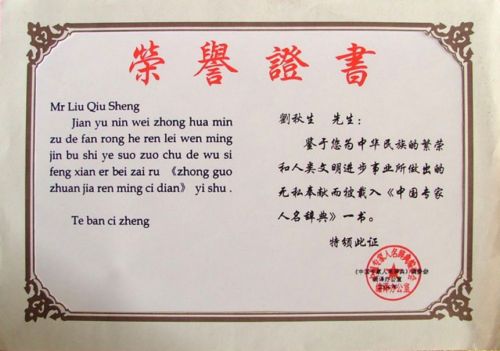 榮譽證書
Mr Liu Qiu Sheng
Jian yu nin wei zhong hua min
zu de fan rong he ren lei wen ming
jin bu shi ye suo zuo chu de wu si
feng xian er bei zai ru 《zhong guo
zhuan jia ren ming ci dian》 yi shu .
Te ban ci zheng
劉秋生 先生：
鉴于您为中华民族的繁荣
和人类文明进步事业所做出的
无私奉献而被载入《中国专家
人名辞典》一书。
特颁此证